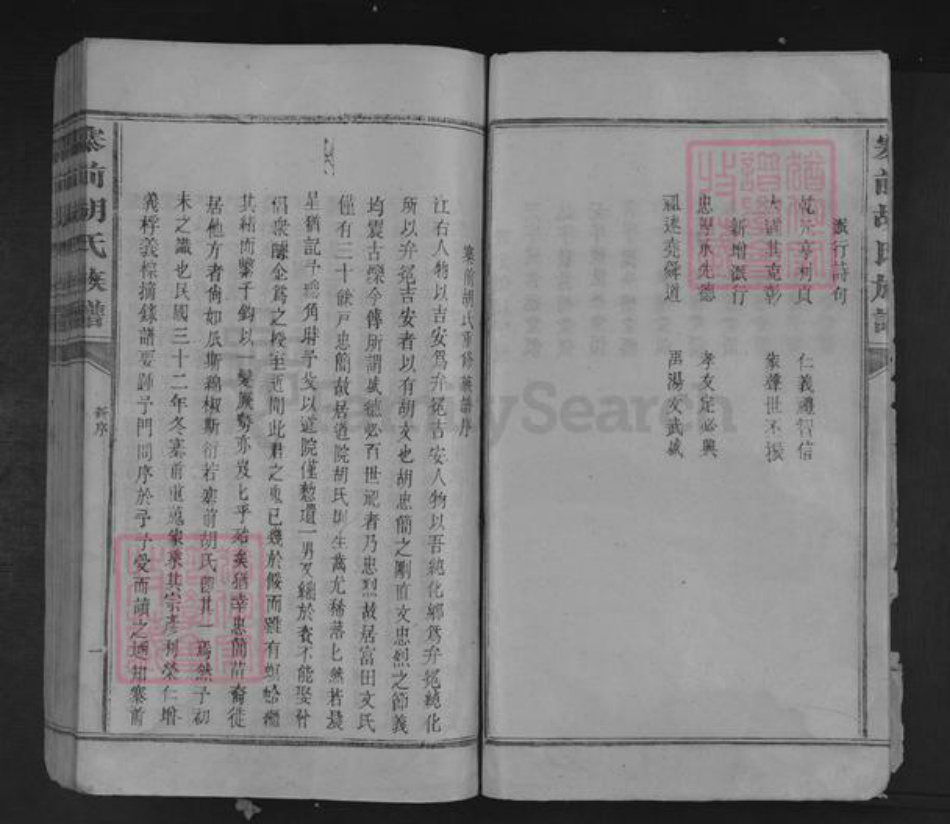 寨前胡氏族譜
派行詩句
元亨利貞 仁義禮智信
其克彰 家聲世丕振
新增派行
忠 承先德 孝友定必興
述堯舜道 禹湯文武盛
寨前胡氏重修族譜序
江右人物以吉安為弁冕吉安人物以吾純化鄉為弁冕純化
所以弁冕吉安者以有胡文也胡忠簡之剛直文忠烈之節義
均震古爍今傳所謂盛德必百世祀者乃忠烈故居富田文氏
僅有三十餘戶忠簡故居道院胡氏 生齒尤稀落 然若晨
星猶記予 角 予 以道院僅 遺一男又 於 不能娶
倡眾醵金為之授室近聞此君之 已幾於餒而雖有
其緒而繫千鈞以一髮厥勢亦岌 乎殆矣猶幸忠簡苗裔徙
居他方者尚如 斯 椒斯衍若寨前胡氏即其一焉然予初
未之識也民國三十二年冬寨前重 家乘其宗彥利榮仁增
義梓義棕摘錄譜要踵予門問序於予予受而讀之 知寨前
寨前胡氏族譜
新序
一
FamilySearch